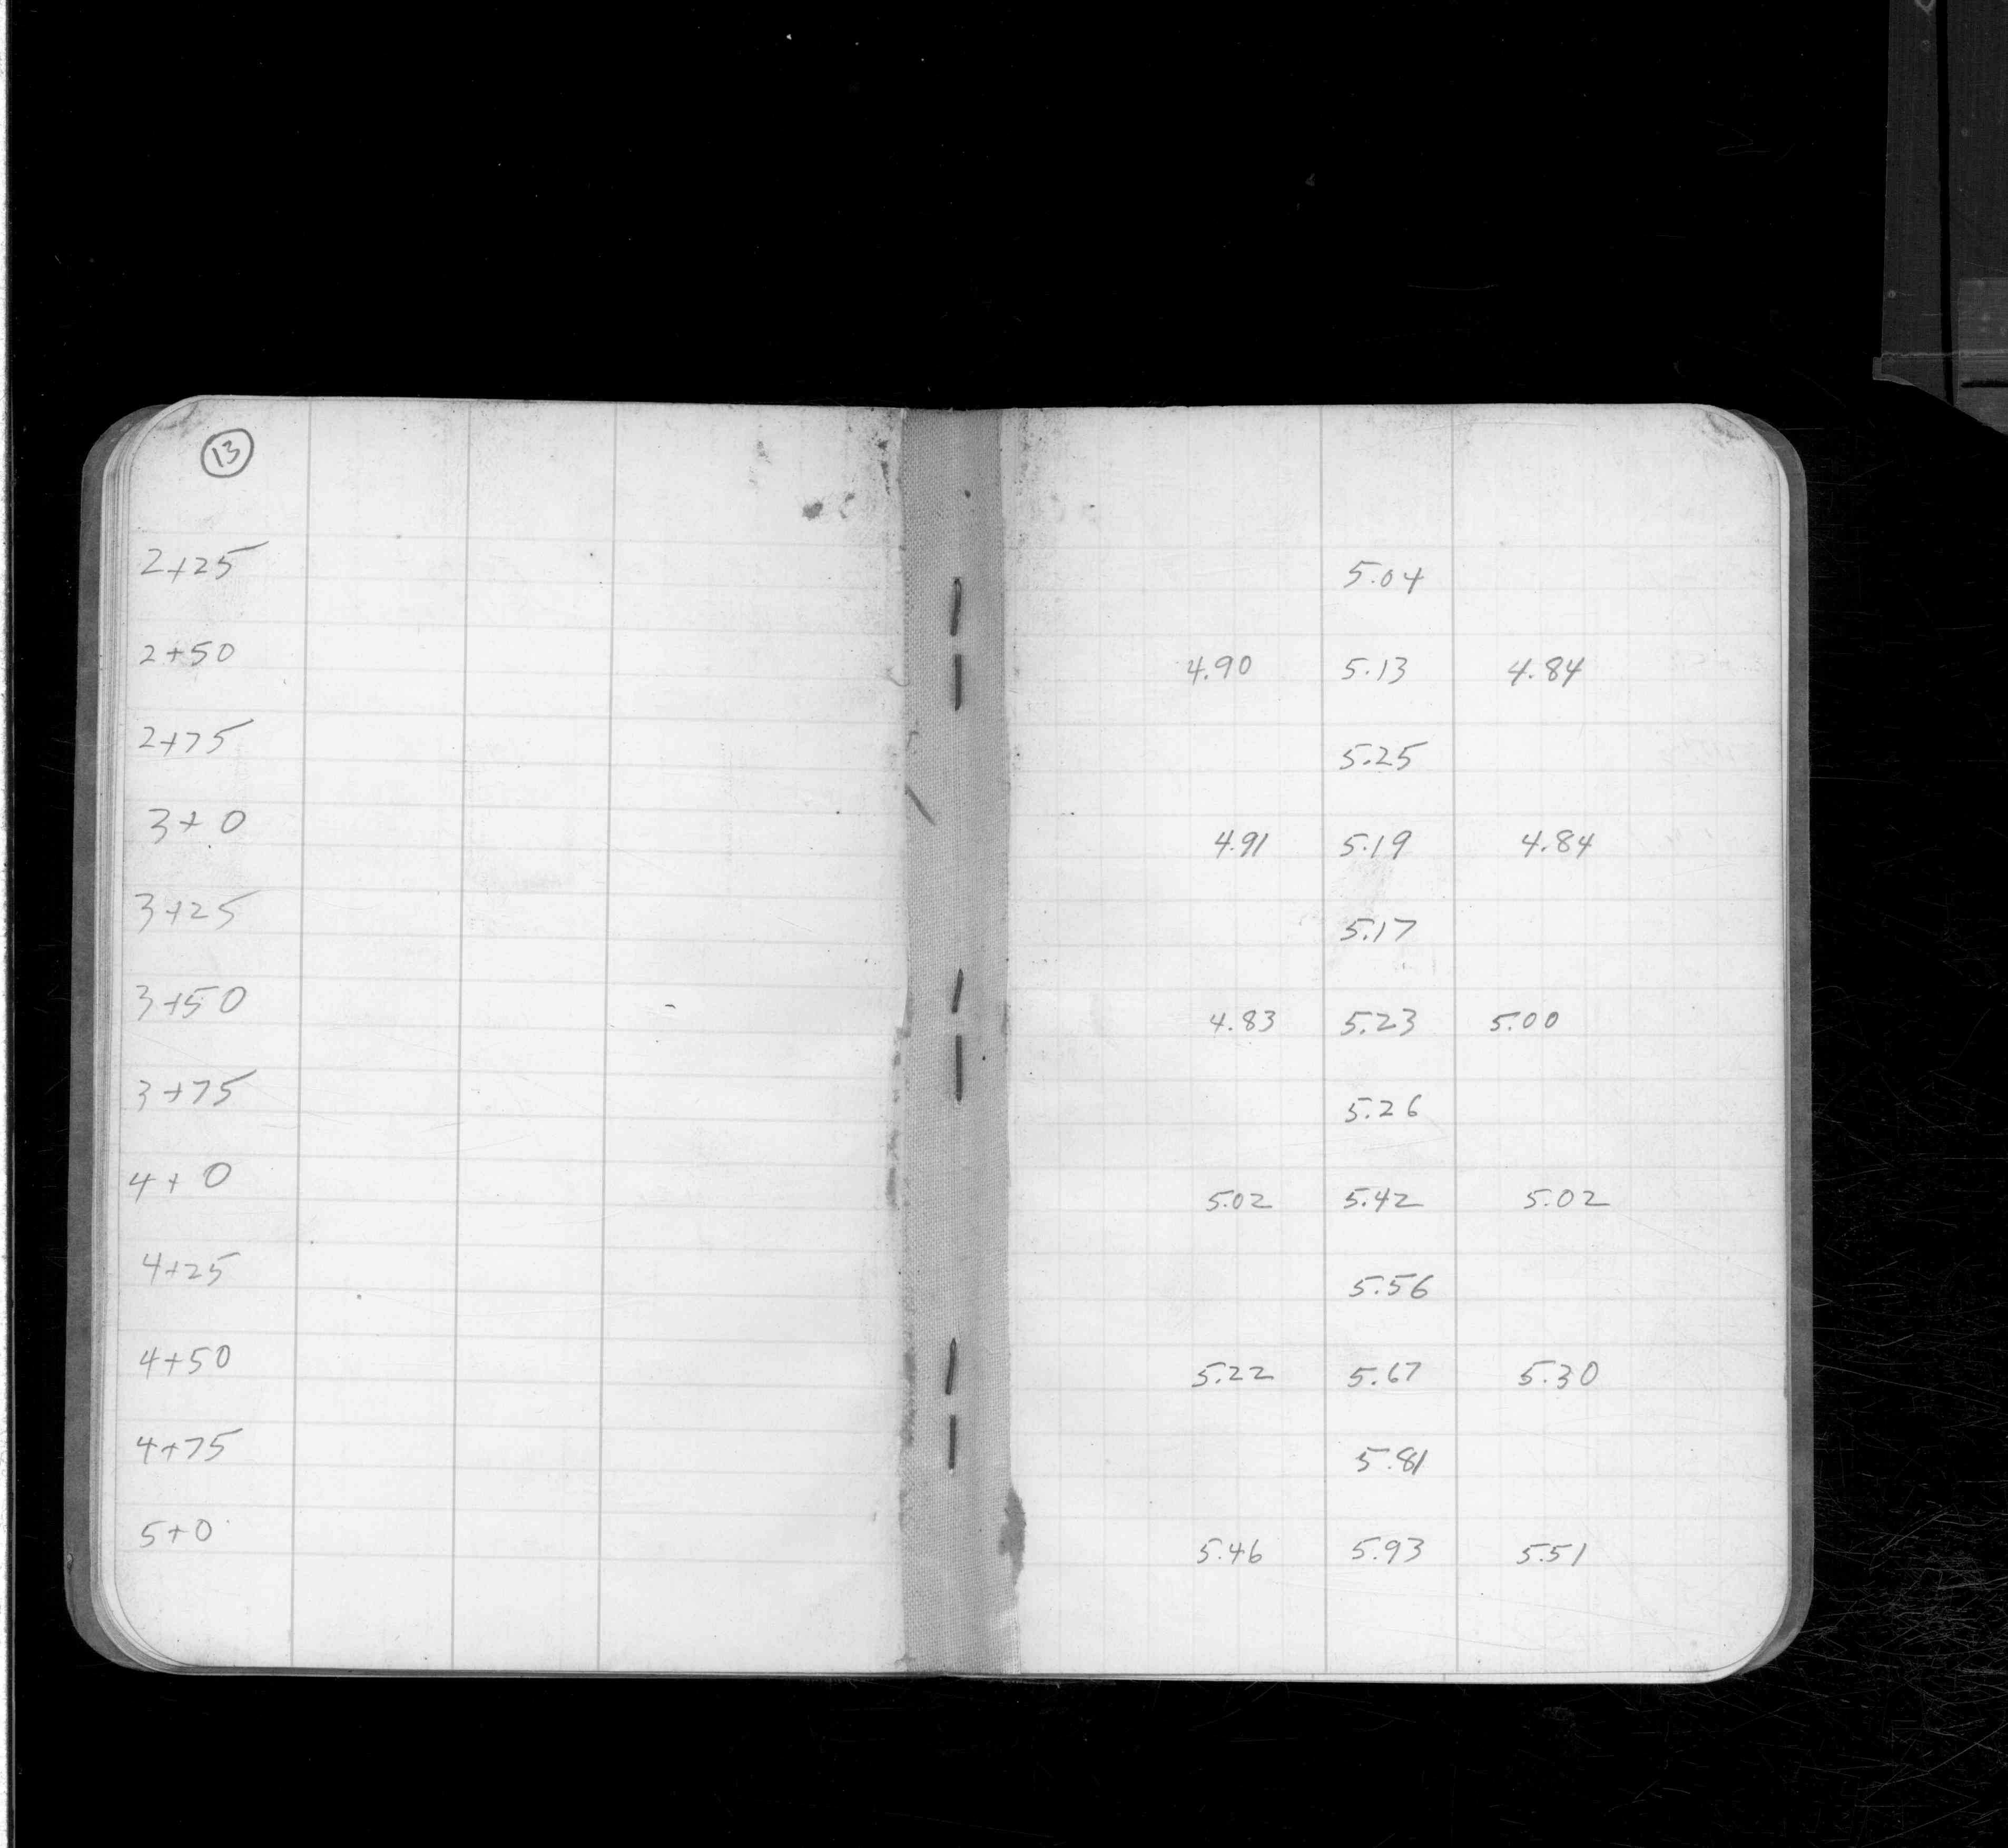 13
2+25 5.04
2+50 4.90 5.13 4.84
2+75 5.25
3+0 4.91 5.19 4.84
3+25 5.17
3+50 4.83 5.23 5.00
3+75 5.26
4+0 5.02 5.42 5.02
4+25 5.56
4+50 5.22 5.67 5.30
4+75 5.81
5+0 5.46 5.93 5.51